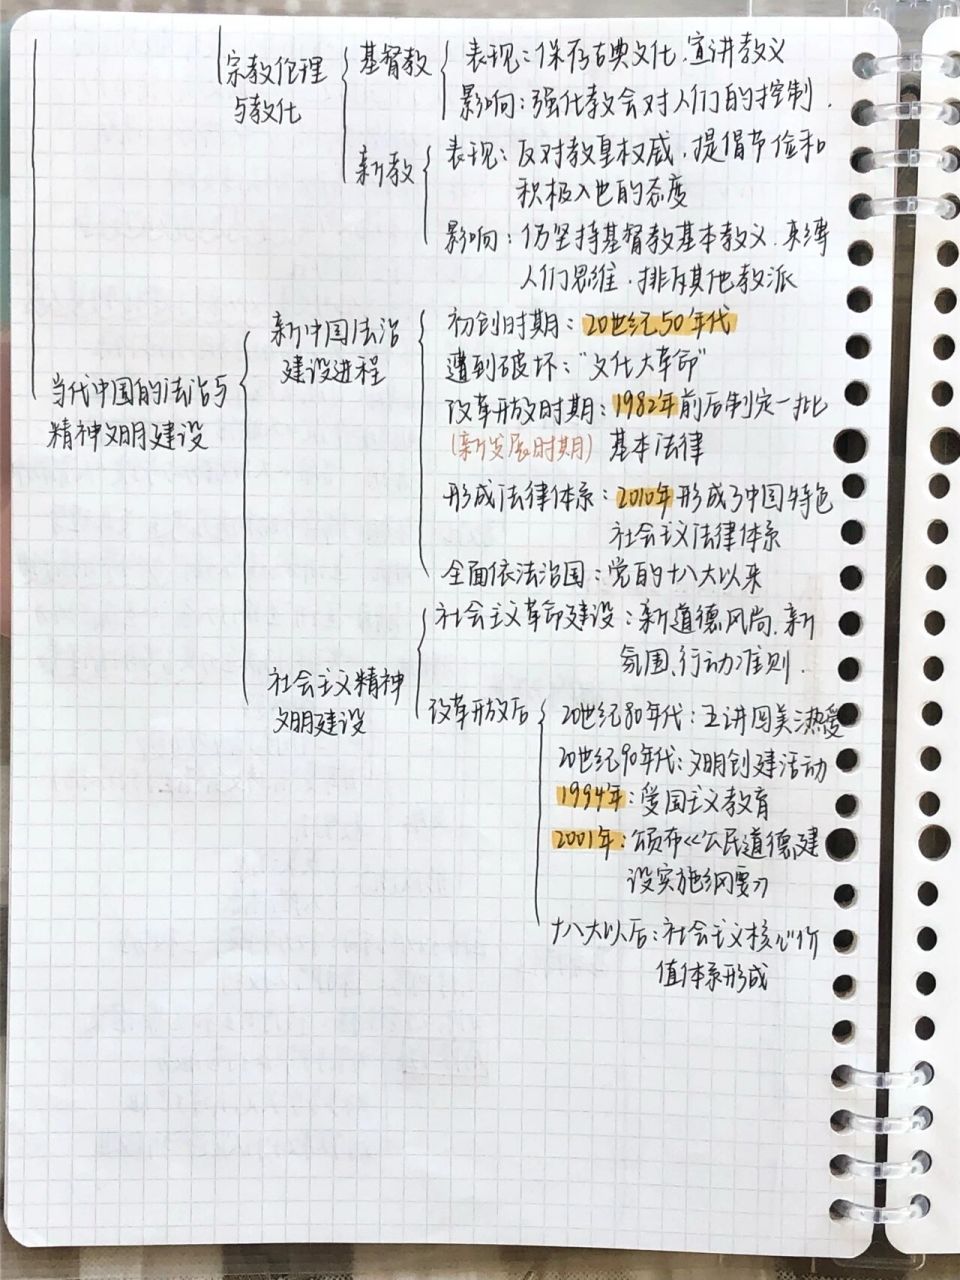 宗教伦理
与教化
基督教
表现：保存古典文化、宣讲教义
影响：强化教会对人们的控制．
新教
表现：反对教皇权威、提倡节俭和
积极入世的态度
影响：仍坚持基督教基本教义、束缚
人们思维、排斥其他教派
当代中国的法治与
精神文明建设
新中国法治
建设进程
初创时期：20世纪50年代
遭到破坏："文化大革命"
改革开放时期：1982年前后制定一批
(新发展时期) 基本法律
形成法律体系：2010年形成了中国特色
社会主义法律体系
全面依法治国：党的十八大以来
社会主义精神
文明建设
社会主义革命建设：新道德风尚、新
氛围、行动准则．
改革开放后
20世纪80年代：五讲四美三热爱
20世纪90年代：文明创建活动
1994年：爱国主义教育
2001年：颁布《公民道德建
设实施纲要》
十八大以后：社会主义核心价
值体系形成